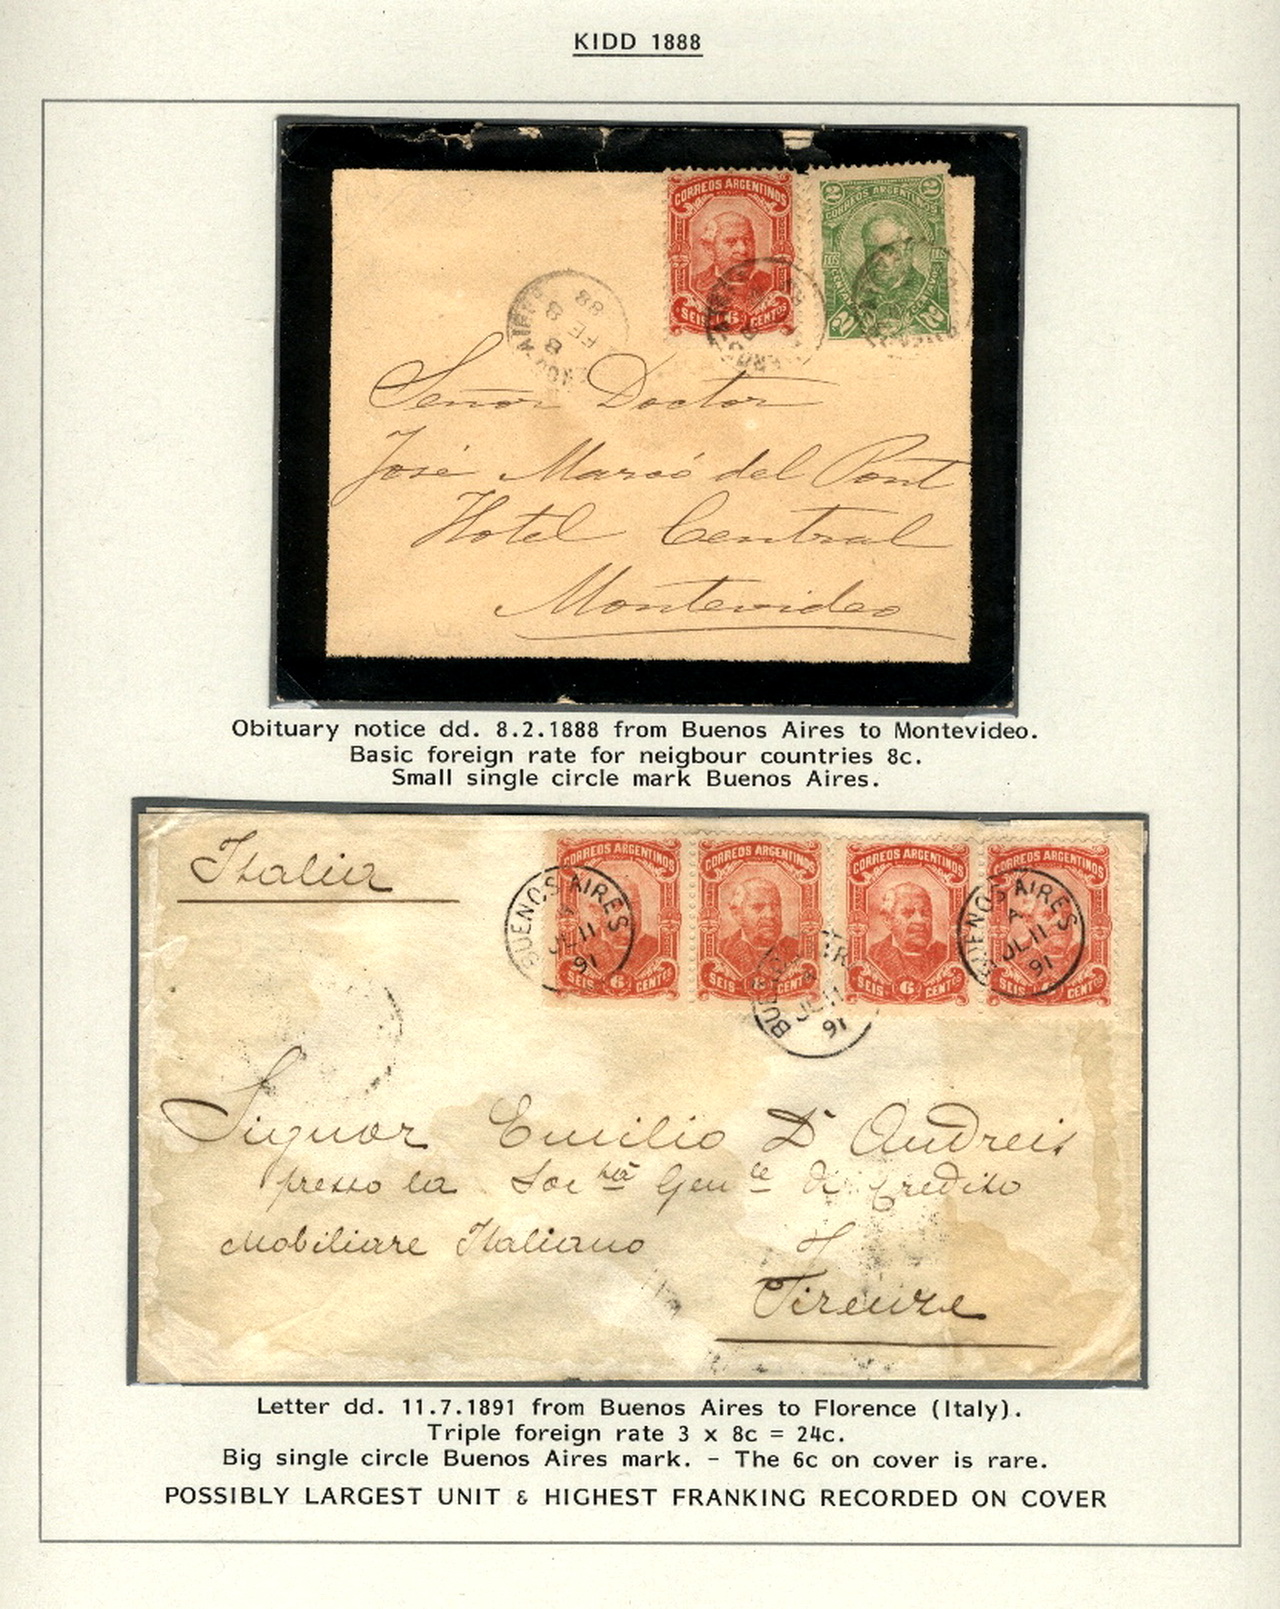 KIDD 1888
CORREOS ARGENTINOS
SEIS 6 CENTOS
2 2
CORREOS ARGENTINOS
DOS CENTAVOS
2 2
FE 8
88
Señor Doctor
José Marcó del Pont
Hotel Central
Montevideo
Obituary notice dd. 8.2.1888 from Buenos Aires to Montevideo.
Basic foreign rate for neigbour countries 8c.
Small single circle mark Buenos Aires.
Italia
CORREOS ARGENTINOS
SEIS 6 CENTOS
CORREOS ARGENTINOS
SEIS 6 CENTOS
CORREOS ARGENTINOS
SEIS 6 CENTOS
CORREOS ARGENTINOS
SEIS CENTOS
BUENOS AIRES
JL 11
91
JL 11
91
BUENOS AIRES
A
JL 11
91
Signor Emilio D'Andreis
presso la Socta Gence di Credito
Mobiliare Italiano
Firenze
Letter dd. 11.7.1891 from Buenos Aires to Florence (Italy).
Triple foreign rate 3 x 8c = 24c.
Big single circle Buenos Aires mark. - The 6c on cover is rare.
POSSIBLY LARGEST UNIT & HIGHEST FRANKING RECORDED ON COVER